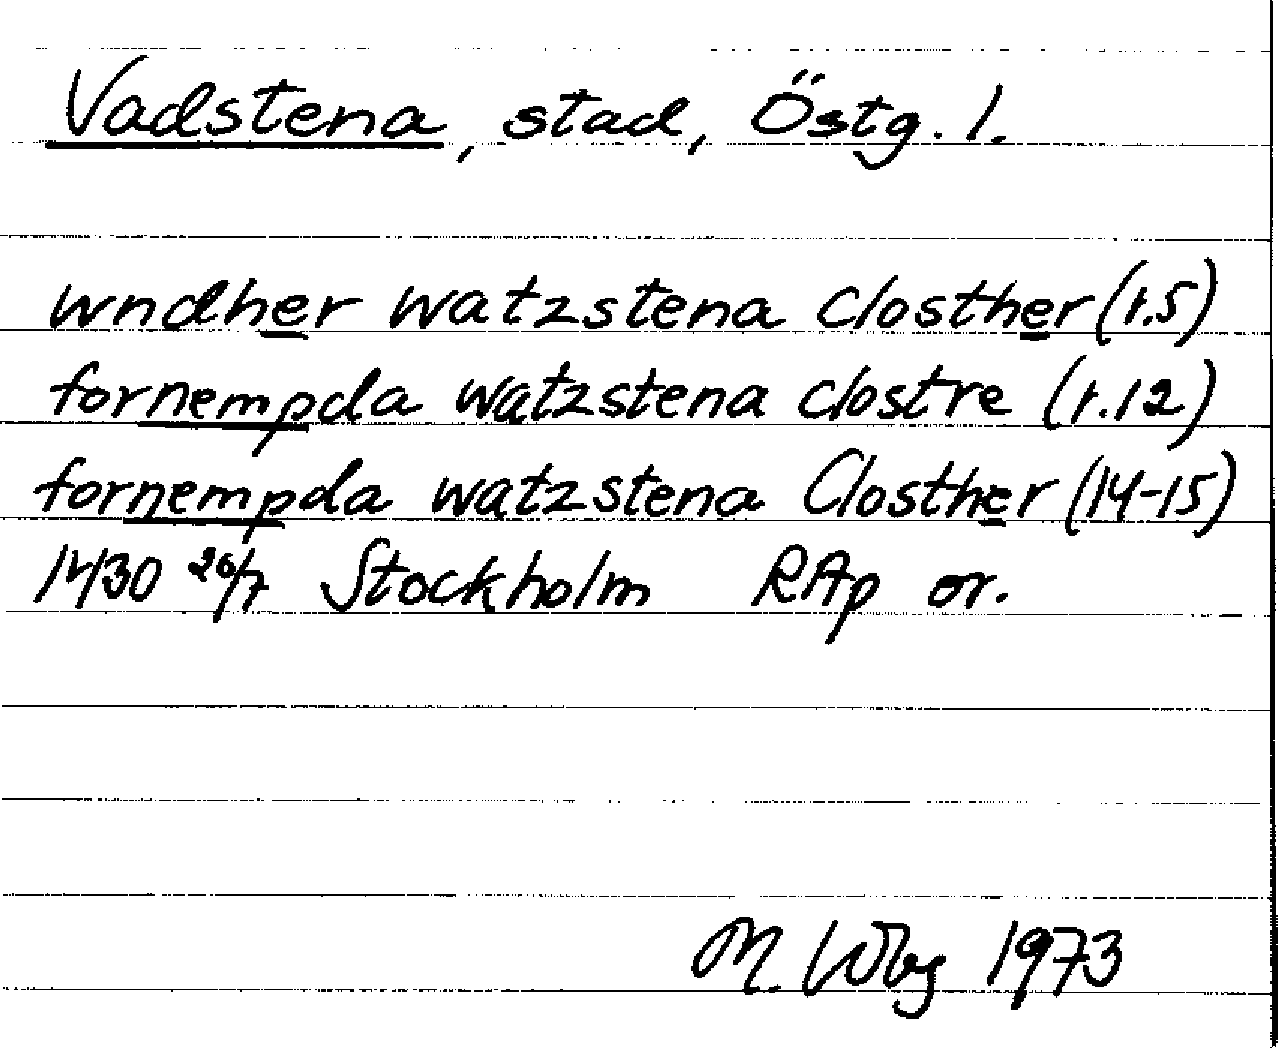 Vadstena, stad, Östg. l.
wndher watzstena closther (r.5)
fornempda watzstena clostre (r.12)
fornempda watzstena Closther (14-15)
1430 26/7 Stockholm RAp or.
M. Wbg 1973